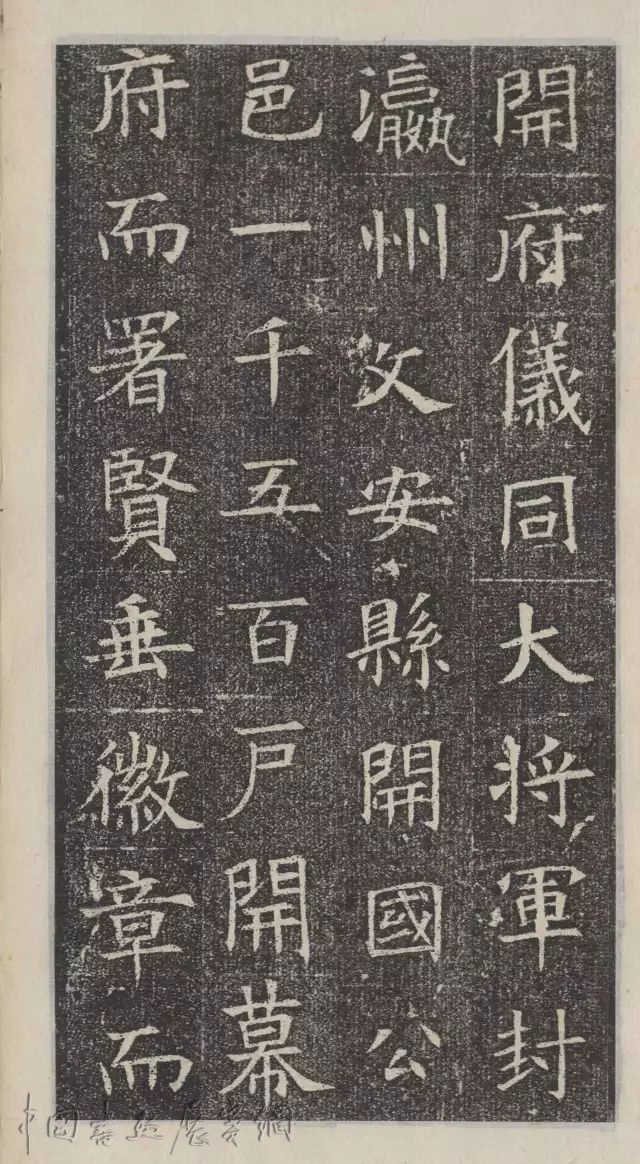 開府儀同大將軍封
瀛州文安縣開國公
邑一千五百戸開幕
府而署賢垂徽章而
中国書法展賞網